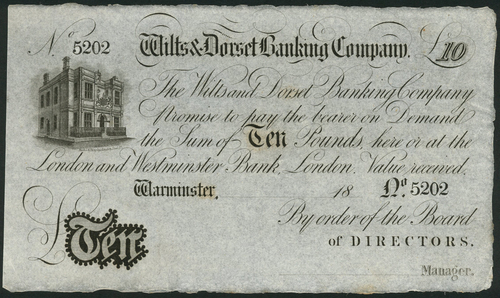 No 5202 Wilts & Dorset Banking Company. £10
The Wilts and Dorset Banking Company
Promise to pay the bearer on Demand
the Sum of Ten Pounds, here or at the
London and Westminster Bank, London. Value received.
Warminster, 18 No 5202
By order of the Board
of DIRECTORS.
£Ten
Manager.